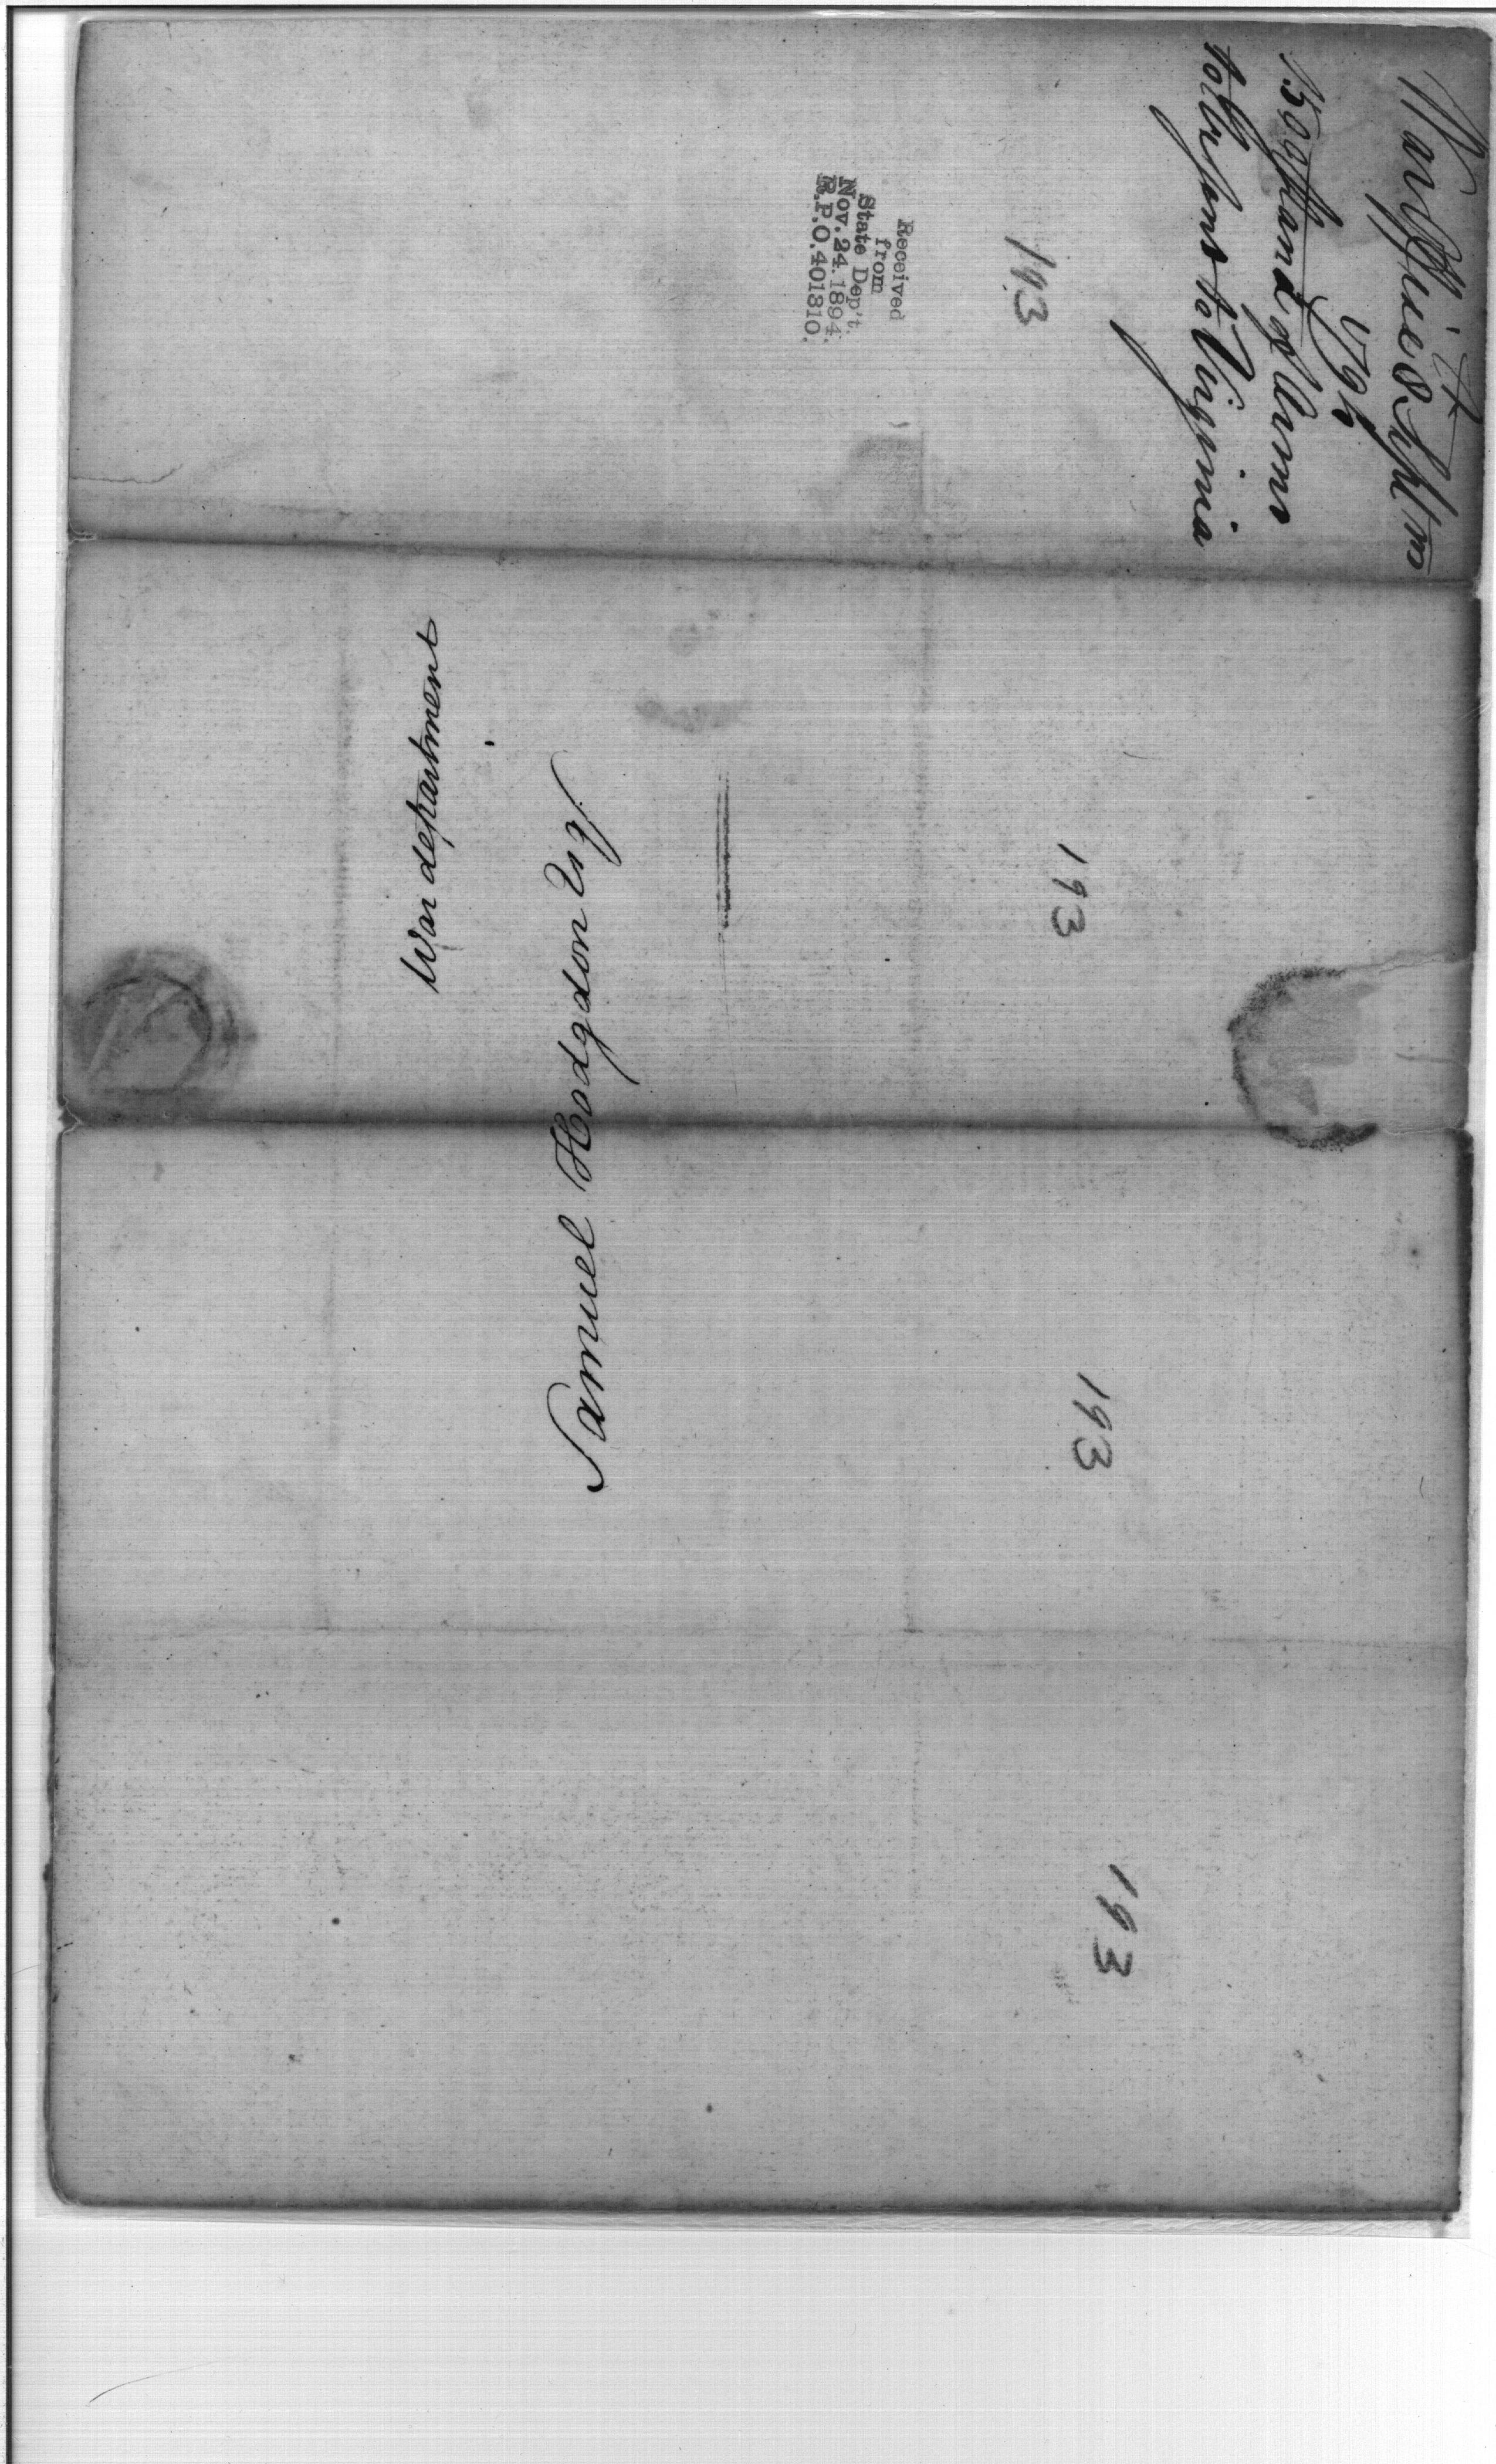 War Office 8 Sept
179
1500 Stand of Arms
to be sent to Virginia
193
Received
from
State Dep't.
Nov. 24. 1894.
R.P.O. 401310.
War department
Samuel Hodgdon Esq
193
193
193